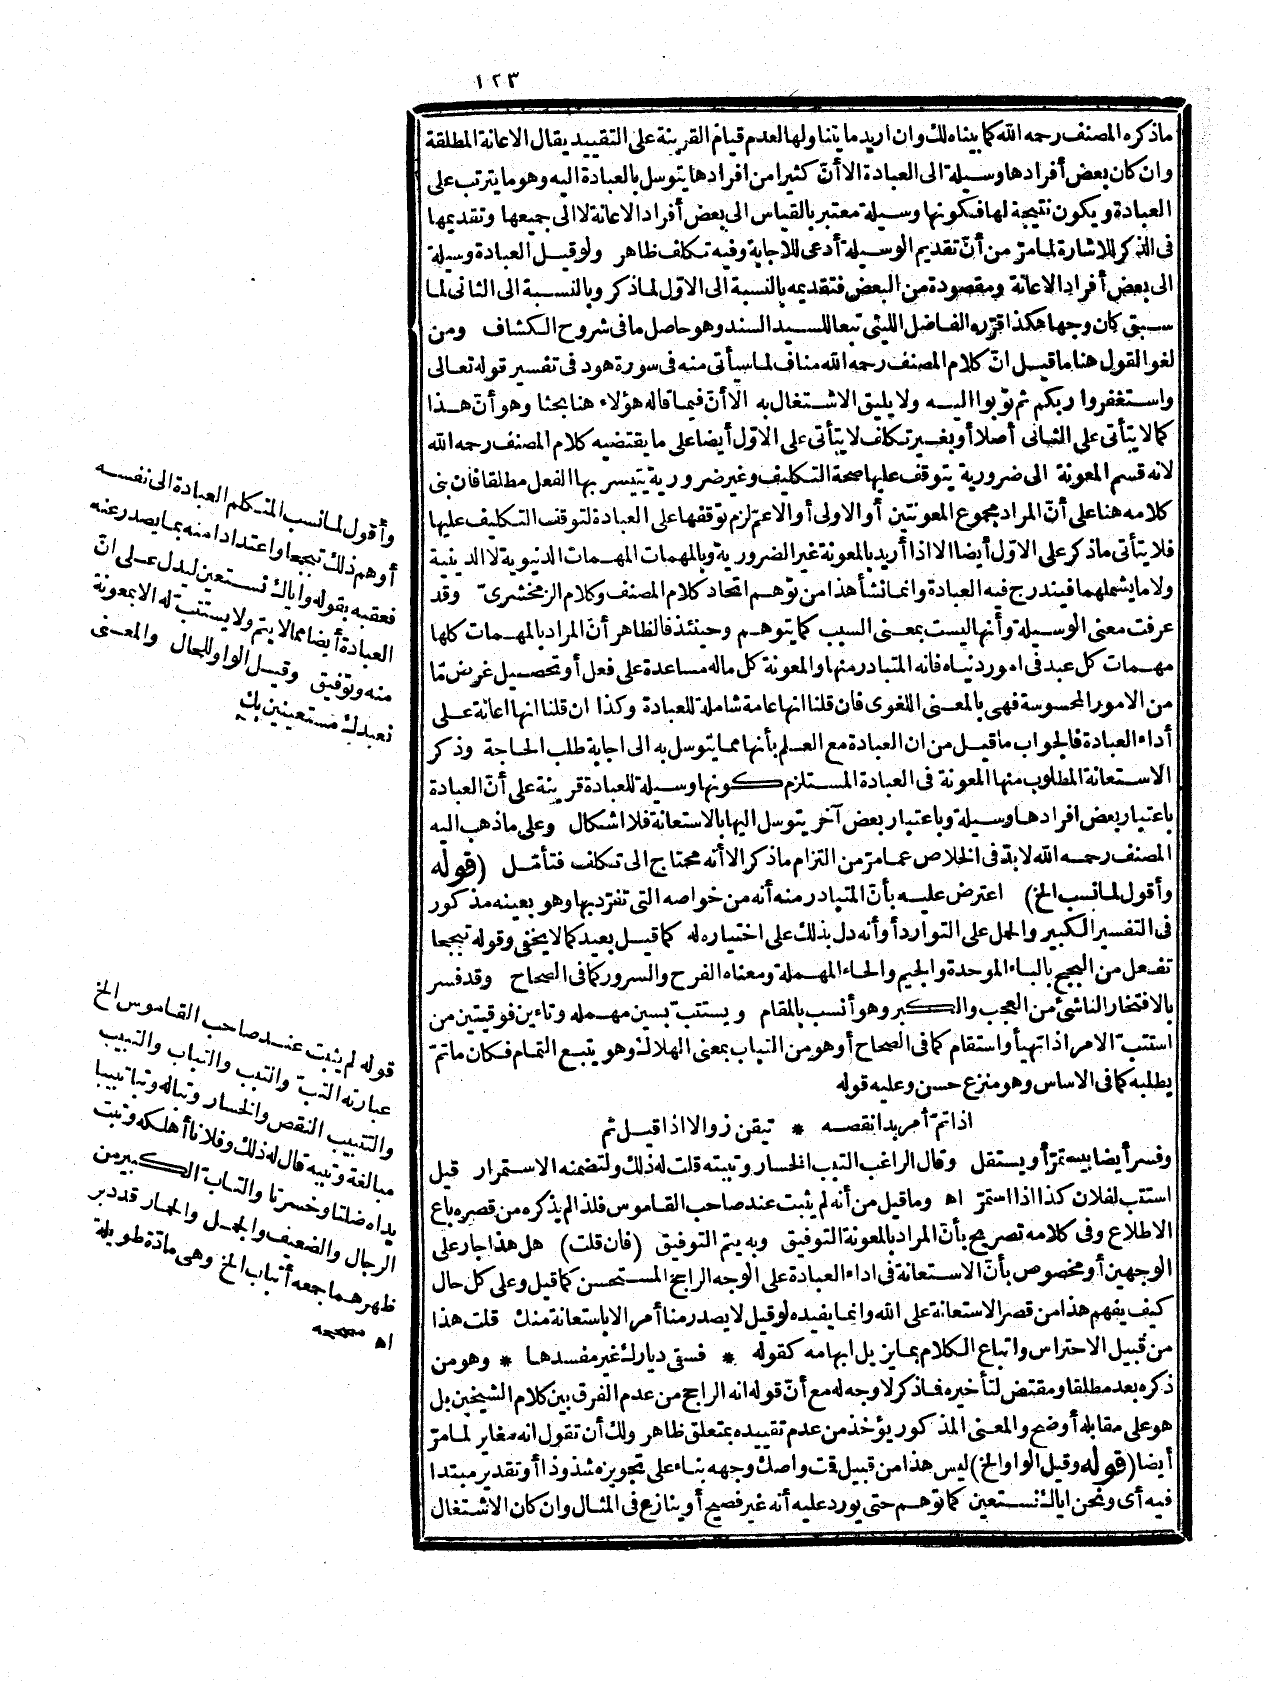 ١٢٣
ما ذكره المصنف رحمه الله كما بيناه لك وان اريد ما يتناولها لعدم قيام القرينة على التقييد يقال الاعانة المطلقة
وان كان بعض أفرادها وسيلة الى العبادة الا أنّ كثيرا من افرادها يتوسل بالعبادة اليه وهو ما يترتب على
العبادة ويكون نتيجة لها فكونها وسيلة معتبر بالقياس الى بعض أفراد الاعانة لا الى جميعها وتقديمها
فى الذكر للاشارة لما مرّ من أنّ تقديم الوسيلة أدعى للاجابة وفيه تكلف ظاهر ولو قيل العبادة وسيلة
الى بعض أفراد الاعانة ومقصودة من البعض فتقديمه بالنسبة الى الاوّل لما ذكر وبالنسبة الى الثانى لما
سبق كان وجها هكذا قرّره الفاضل الليثى تبعا للسيد السند وهو حاصل ما فى شروح الكشاف ومن
لغو القول هنا ما قيل انّ كلام المصنف رحمه الله مناف لما سيأتى منه فى سورة هود فى تفسير قوله تعالى
واستغفروا ربكم ثم توبوا اليه ولا يليق الاشتغال به الا أنّ فيما قاله هؤلاء هنا بحثا وهو أنّ هذا
كما لا يتأتى على الثانى أصلا أو بغير تكلف لا يتأتى على الاوّل أيضا على ما يقتضيه كلام المصنف رحمه الله
لانه قسم المعونة الى ضرورية يتوقف عليها صحة التكليف وغير ضرورية يتيسر بها الفعل مطلقا فان بنى
كلامه هنا على أنّ المراد مجموع المعونتين أو الاولى أو الاعمّ لزم توقفها على العبادة لتوقف التكليف عليها
فلا يتأتى ما ذكر على الاوّل أيضا الا اذا أريد بالمعونة غير الضرورية وبالمهمات المهمات الدنيوية لا الدينية
ولا ما يشملهما فيندرج فيه العبادة وانما نشأ هذا من توهم اتحاد كلام المصنف وكلام الزمخشرىّ وقد
عرفت معنى الوسيلة وأنها ليست بمعنى السبب كما يتوهم وحينئذ فالظاهر أنّ المراد بالمهمات كلها
مهمات كل عبد فى امور دنياه فانه المتبادر منها والمعونة كل ماله مساعدة على فعل أو تحصيل غرض مّا
من الامور المحسوسة فهى بالمعنى اللغوى فان قلنا انها عامة شاملة للعبادة وكذا ان قلنا انها اعانة على
أداء العبادة فالجواب ما قيل من ان العبادة مع العلم بأنها مما يتوسل به الى اجابة طلب الحاجة وذكر
الاستعانة المطلوب منها المعونة فى العبادة المستلزم كونها وسيلة للعبادة قرينة على أنّ العبادة
باعتبار بعض افرادها وسيلة وباعتبار بعض آخر يتوسل اليها بالاستعانة فلا اشكال وعلى ما ذهب اليه
المصنف رحمه الله لا بدّ فى الخلاص عما مرّ من التزام ما ذكر الا أنه محتاج الى تكلف فتأمّل (قوله
وأقول لما نسب الخ) اعترض عليه بأنّ المتبادر منه أنه من خواصه التى تفرّد بها وهو بعينه مذكور
فى التفسير الكبير والحمل على التوارد أو أنه دل بذلك على اختياره له كما قيل بعيد كما لا يخفى وقوله تبجحا
تفعل من البجح بالباء الموحدة والجيم والحاء المهملة ومعناه الفرح والسرور كما فى الصحاح وقد فسر
بالافتخار الناشئ من العجب والكبر وهو أنسب بالمقام ويستتبّ بسين مهملة وتاءين فوقيتين من
استتبّ الامر اذا تهيأ واستقام كما فى الصحاح أو هو من التباب بمعنى الهلاك وهو يتبع التمام فكان ما تمّ
يطلبه كما فى الاساس وهو منزع حسن وعليه قوله
اذا تمّ أمر بدا نقصه * تيقن زوالا اذا قيل تم
وفسر أيضا بيستمرّ أو يستقل وقال الراغب التبب الخسار وتببته قلت له ذلك ولتضمنه الاستمرار قيل
استتب لفلان كذا اذا استمرّ اه وما قيل من أنه لم يثبت عند صاحب القاموس فلذا لم يذكره من قصر باع
الاطلاع وفى كلامه تصريح بأنّ المراد بالمعونة التوفيق وبه يتم التوفيق (فان قلت) هل هذا جار على
الوجهين أو مخصوص بأنّ الاستعانة فى اداء العبادة على الوجه الراجح المستحسن كما قيل وعلى كل حال
كيف يفهم هذا من قصر الاستعانة على الله وانما يفيده لو قيل لا يصدر منا أمر الا باستعانة منك قلت هذا
من قبيل الاحتراس واتباع الكلام بما يزيل ابهامه كقوله * فسقى ديارك غير مفسدها * وهو من
ذكره بعد مطلقا ومقتض لتأخيره فما ذكر لا وجه له مع أنّ قوله انه الراجح من عدم الفرق بين كلام الشيخين بل
هو على مقابله أوضح والمعنى المذكور يؤخذ من عدم تقييده بمتعلق ظاهر ولك أن تقول انه مغاير لما مرّ
أيضا (قوله وقيل الواو الخ) ليس هذا من قبيل قمت واصك وجهه بناء على تجويزه شذوذا أو تقدير مبتدا
فيه أى ونحن اياك نستعين كما توهم حتى يورد عليه أنه غير فصيح أو ينازع فى المثال وان كان الاشتغال
وأقول لما نسب المتكلم العبادة الى نفسه
أوهم ذلك تبجحا واعتدادا منه بما يصدر عنه
فعقبه بقوله واياك نستعين ليدل على انّ
العبادة أيضا مما لا يتم ولا يستتبّ له الا بمعونة
منه وتوفيق وقيل الواو للحال والمعنى
نعبدك مستعينين بك
قوله لم يثبت عند صاحب القاموس الخ
عبارته التبّ والتبب والتباب والتبيب
والتتبيب النقص والخسار وتبا له وتبا تبيبا
مبالغة وتببه قال له ذلك وفلانا أهلكه وتبت
يداه ضلتا وخسرتا والتابّ الكبير من
الرجال والضعيف والجمل والحمار قد دبر
ظهرهما جمعه أتباب الخ وهى مادّة طويلة
اه مصححه